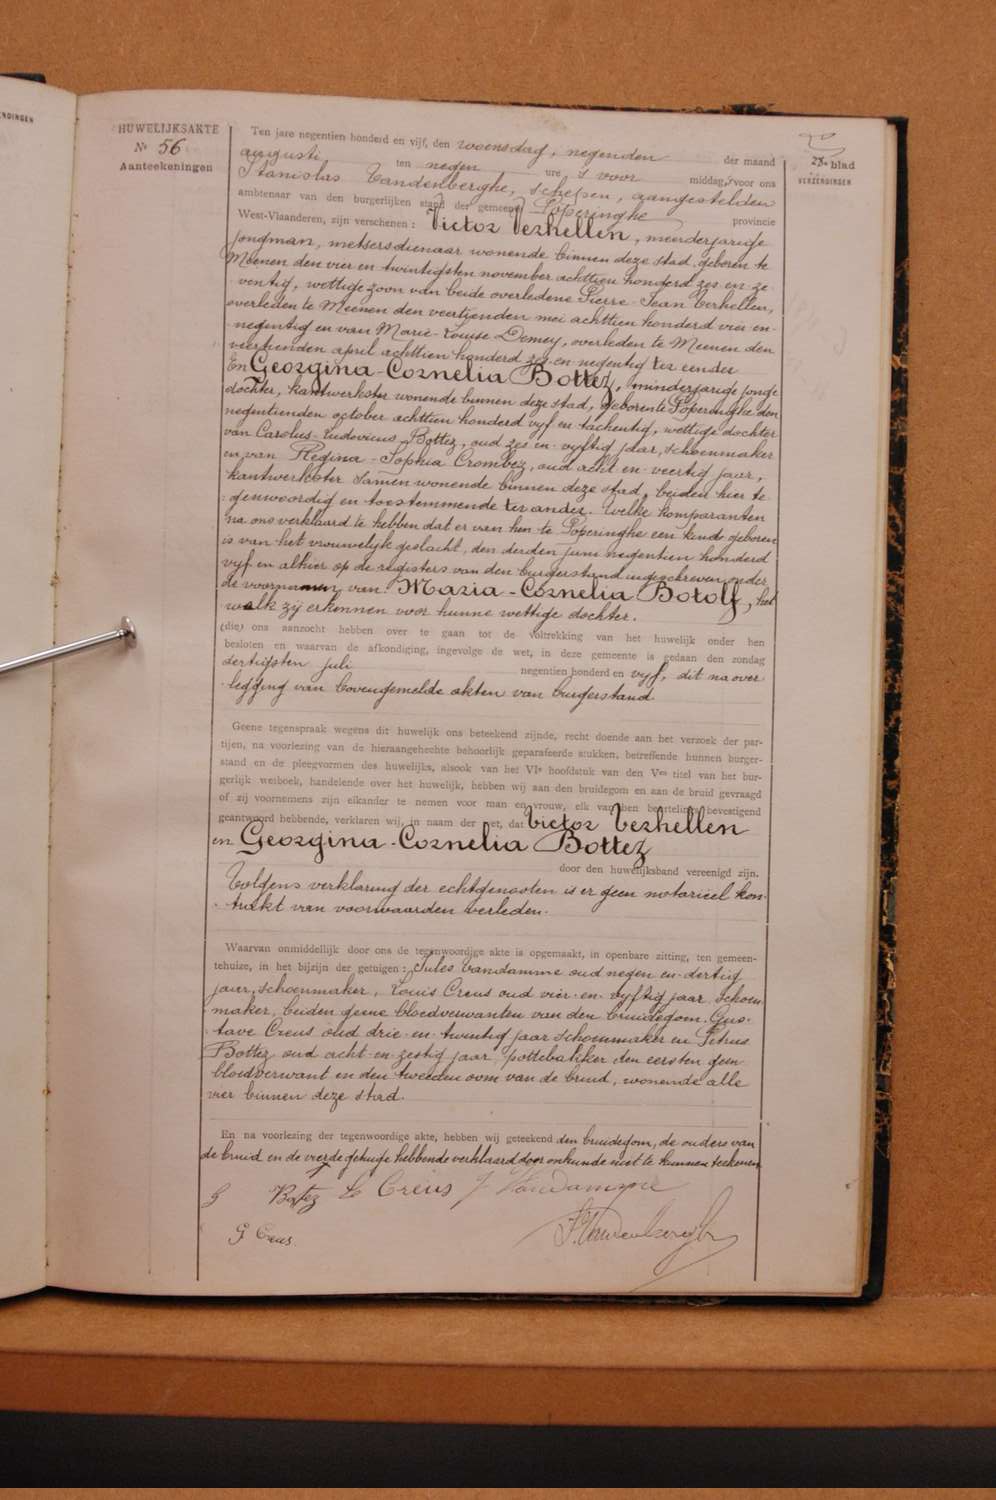 ENDINGEN
HUWELIJKSAKTE
Nr 56
Aanteekeningen
blad
VERZENDINGEN
Ten jare negentien honderd en vijf, den woensdag, negenden der maand
augusti ten negen ure 's voor middag, voor ons
Stanislas Vandenberghe, schepen, aangestelden
ambtenaar van den burgerlijken stand der gemeente Poperinghe provincie
West-Vlaanderen, zijn verschenen: Victor Verhellen, meerderjarige
jongman, metsersdienaar wonende binnen deze stad, geboren te
Meenen den vier en twintigsten november achttien honderd zes en ze-
ventig, wettige zoon van beide overledene Pierre-Jean Verhellen,
overleden te Meenen den veertienden mei achttien honderd vier en
negentig en van Marie-Louise Demey, overleden te Meenen den
veertienden april achttien honderd zes en negentig ter eender
En Georgina-Cornelia Bottez, minderjarige jonge
dochter, kantwerkster wonende binnen deze stad, geboren te Poperinghe den
negentienden october achttien honderd vyf en tachentig, wettige dochter
van Carolus-Ludovicus Bottez, oud zes en vyftig jaar, schoenmaker
en van Regina-Sophia Crombez, oud acht en veertig jaar,
kantwerkster samen wonende binnen deze stad, beiden hier te-
genwoordig en toestemmende ter ander. Welke komparanten
na ons verklaard te hebben dat er van hen te Poperinghe een kind geboren
is van het vrouwelyk geslacht, den derden juni negentien honderd
vyf en alhier op de registers van den burgerstand ingeschreven onder
de voornamen van Maria-Cornelia Botolf, het
welk zij erkennen voor hunne wettige dochter.
(die) ons aanzocht hebben over te gaan tot de voltrekking van het huwelijk onder hen
besloten en waarvan de afkondiging, ingevolge de wet, in deze gemeente is gedaan den zondag
dertigsten juli negentien honderd en vyf, dit na over
legging van bovengemelde akten van burgerstand
Geene tegenspraak wegens dit huwelijk ons beteekend zijnde, recht doende aan het verzoek der par-
tijen, na voorlezing van de hieraangehechte behoorlijk geparafeerde stukken, betreffende hunnen burger-
stand en de pleegvormen des huwelijks, alsook van het VIe hoofdstuk van den Ven titel van het bur-
gerlijk wetboek, handelende over het huwelijk, hebben wij aan den bruidegom en aan de bruid gevraagd
of zij voornemens zijn elkander te nemen voor man en vrouw, elk van hen beurtelings bevestigend
geantwoord hebbende, verklaren wij, in naam der wet, dat Victor Verhellen
en Georgina-Cornelia Bottez
door den huwelijksband vereenigd zijn.
Volgens verklaring der echtgenooten is er geen notarieel kon-
trakt van voorwaarden verleden.
Waarvan onmiddellijk door ons de tegenwoordige akte is opgemaakt, in openbare zitting, ten gemeen-
tehuize, in het bijzijn der getuigen: Jules Vandamme oud negen en dertig
jaar, schoenmaker, Louis Creus oud vier en vyftig jaar schoen-
maker, beiden geene bloedverwanten van den bruidegom, Gus-
tave Creus oud drie en twintig jaar schoenmaker en Petrus
Bottez oud acht en zestig jaar pottebakker den eersten geen
bloedverwant en den tweeden oom van de bruid, wonende alle
vier binnen deze stad.
En na voorlezing der tegenwoordige akte, hebben wij geteekend den bruidegom, de ouders van
de bruid en de vierde getuige hebbende verklaard door onkunde niet te kunnen teekenen
G Bottez L Creus J Vandamme
G Creus S. Vandenberghe